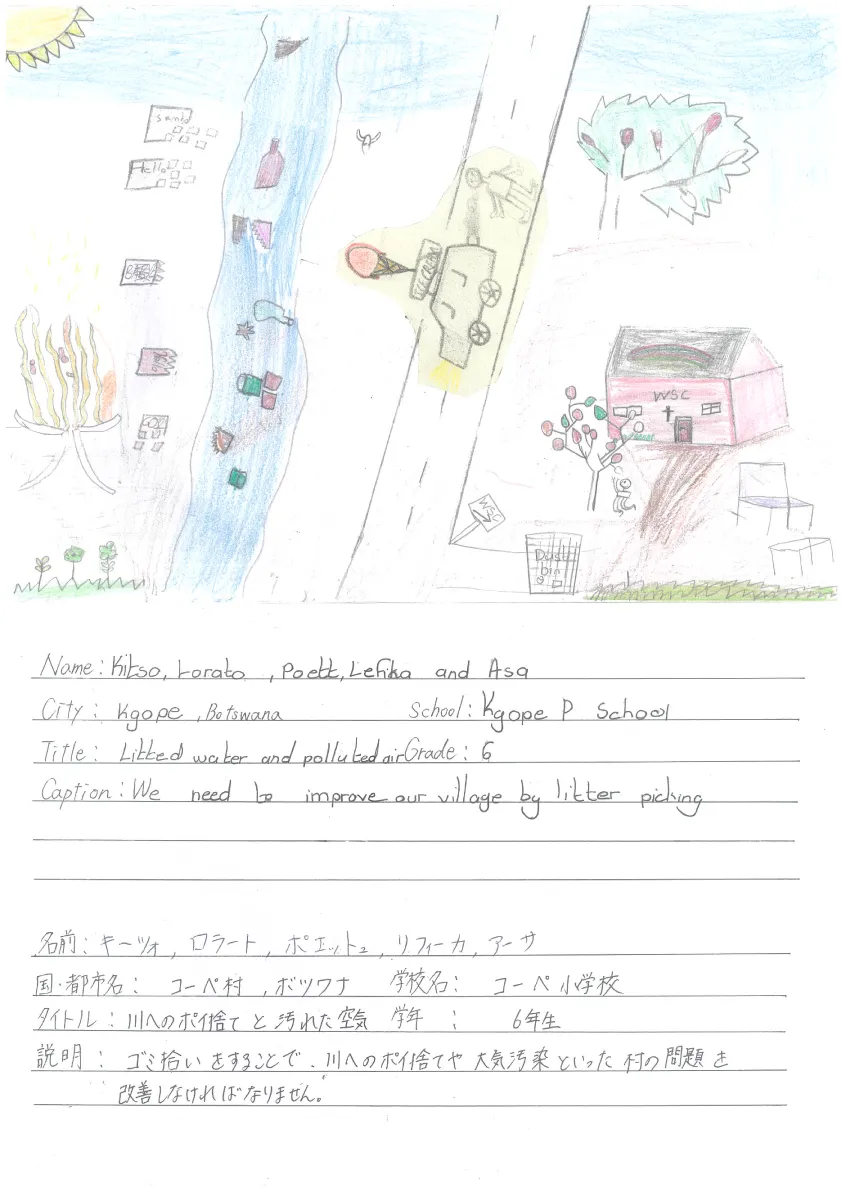 sand
Hello
ICE CREAM
WSC
WSC
Dust
bin
Name: Kitso, Lorato , Poett, Lefika and Asa
City: Kgope , Botswana School: Kgope P School
Title: Litted water and polluted air Grade: 6
Caption: We need to improve our village by litter picking
名前: キーツォ, ロラート, ポエットュ, リフィーカ, アーサ
国・都市名: コーペ村 , ボツワナ 学校名: コーペ小学校
タイトル: 川へのポイ捨てと汚れた空気 学年 : 6年生
説明: ゴミ拾いをすることで、川へのポイ捨てや大気汚染といった村の問題を
改善しなければなりません。